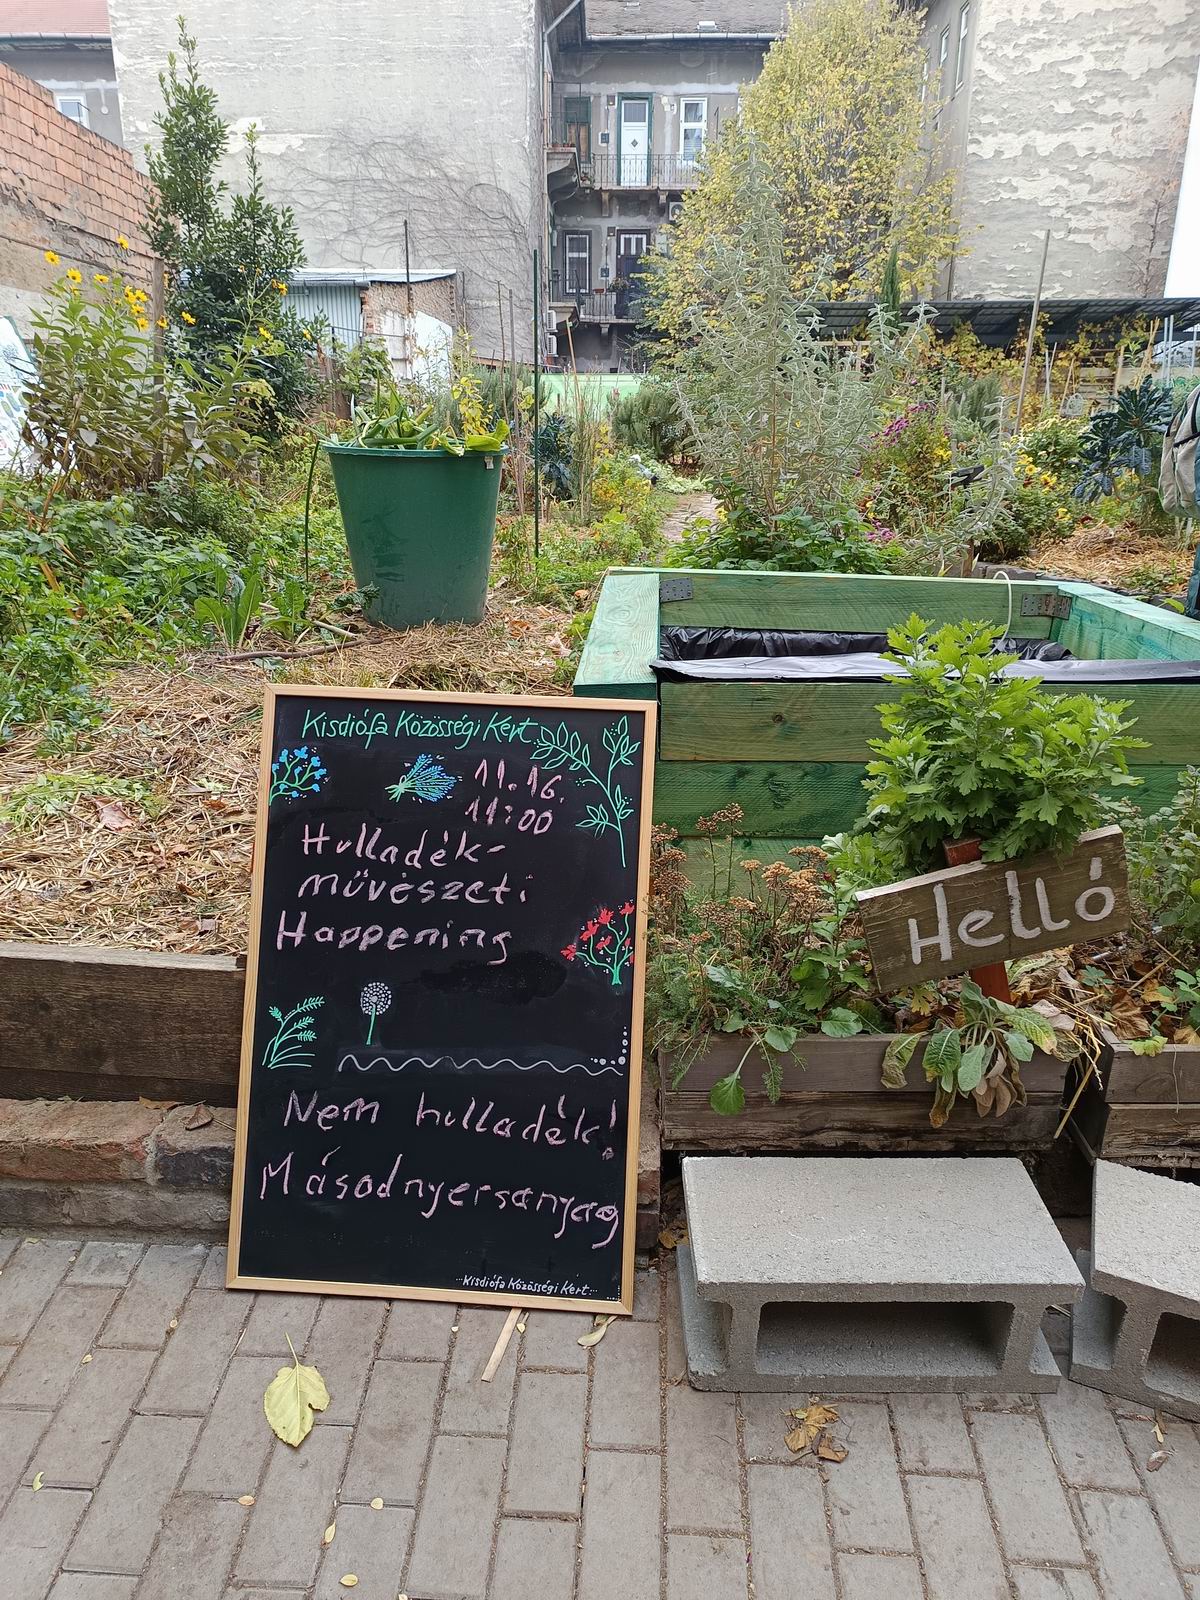 Kisdiófa Közösségi Kert
11.16.
11:00
Hulladék-
művészeti
Happening
Nem hulladék!
Másodnyersanyag
Kisdiófa Közösségi Kert
Helló